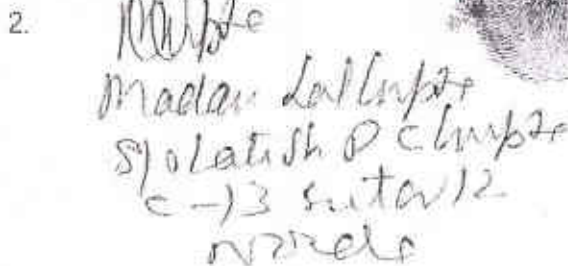 2.
Madan Lal Gupta
S/o Late Sh P C Gupta
C-13 Sector 12
Noida